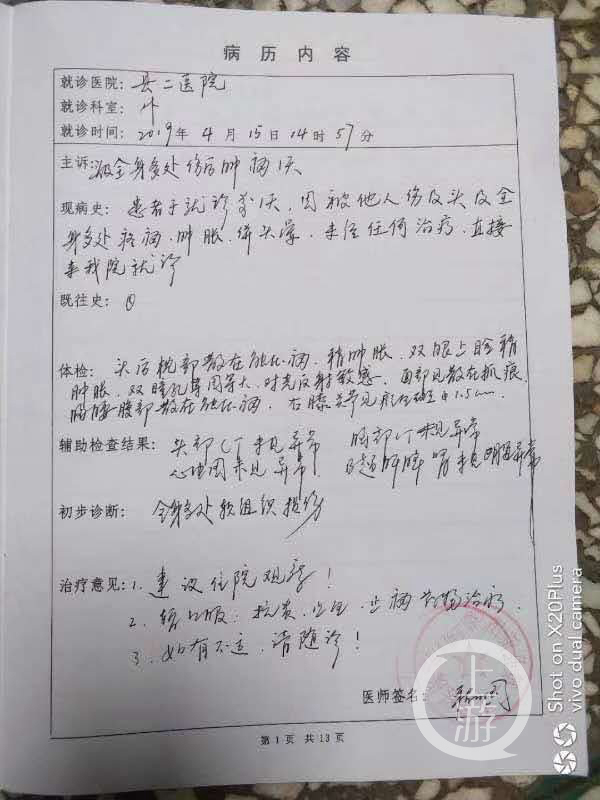 病历内容
就诊医院: 县二医院
就诊科室: 外
就诊时间: 2019年4月15日14时57分
主诉: 全身多处伤后肿痛1天
现病史: 患者于就诊前1天,因被他人伤及头及全
身多处疼痛、肿胀、伴头晕,未经任何治疗,直接
来我院就诊
既往史:
体检: 头后枕部散在触压痛,稍肿胀,双眼上睑稍
肿胀,双瞳孔等圆等大,对光反射敏感,面部见散在抓痕,
胸腰腹部散在触压痛,右膝关节见 1.5cm
辅助检查结果: 头部CT未见异常 胸部CT未见异常
心电图未见异常 B超肝脾肾未见明显异常
初步诊断: 全身多处软组织损伤
治疗意见: 1、建议住院观察!
2、口服:抗炎、止痛药物治疗.
3、如有不适,请随诊!
医师签名:
第1页 共13页
上游
Shot on X20Plus
vivo dual camera